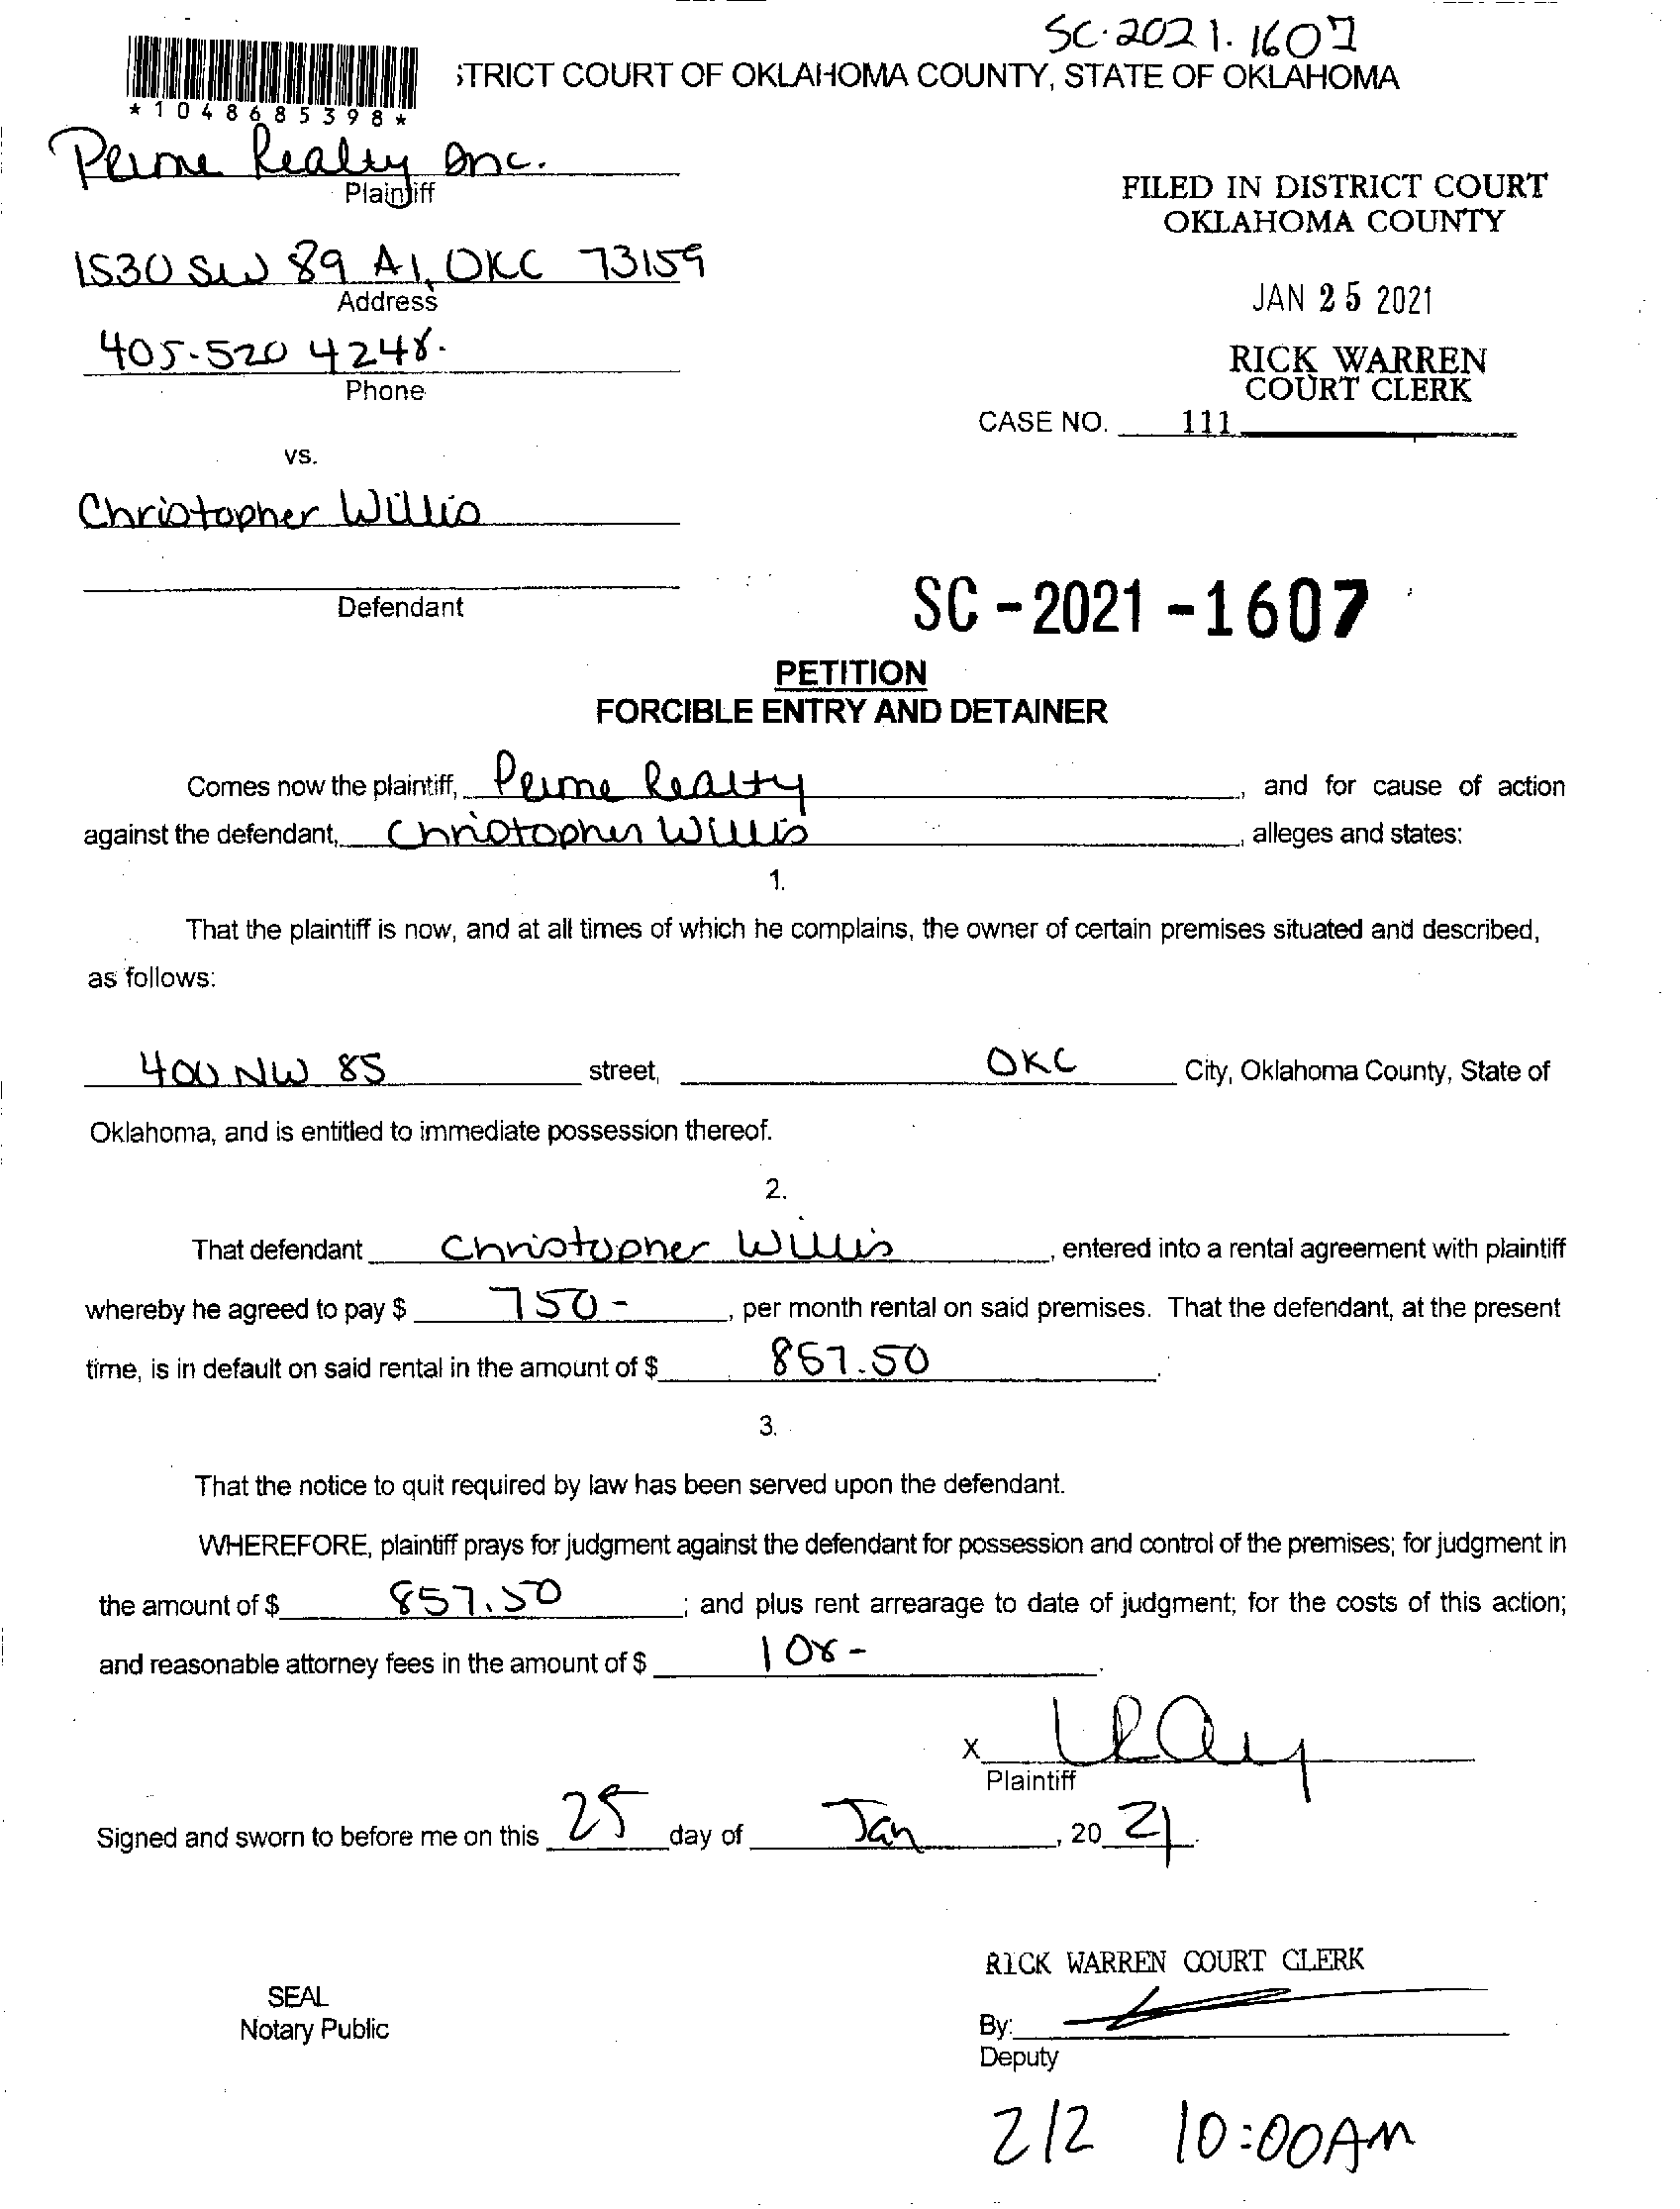 SC-2021-1607
STRICT COURT OF OKLAHOMA COUNTY, STATE OF OKLAHOMA
*1048685398*
Prime Realty Inc.
Plaintiff
FILED IN DISTRICT COURT
OKLAHOMA COUNTY
1530 SW 89 A1, OKC 73159
Address
JAN 25 2021
405-520 4248.
Phone
RICK WARREN
COURT CLERK
CASE NO. 111
vs.
Christopher Willis
Defendant
SC-2021-1607
PETITION
FORCIBLE ENTRY AND DETAINER
Comes now the plaintiff, Prime Realty, and for cause of action
against the defendant, Christopher Willis, alleges and states:
1.
That the plaintiff is now, and at all times of which he complains, the owner of certain premises situated and described,
as follows:
400 NW 85 street, OKC City, Oklahoma County, State of
Oklahoma, and is entitled to immediate possession thereof.
2.
That defendant Christopher Willis, entered into a rental agreement with plaintiff
whereby he agreed to pay $ 750-, per month rental on said premises. That the defendant, at the present
time, is in default on said rental in the amount of $ 857.50.
3.
That the notice to quit required by law has been served upon the defendant.
WHEREFORE, plaintiff prays for judgment against the defendant for possession and control of the premises; for judgment in
the amount of $ 857.50; and plus rent arrearage to date of judgment; for the costs of this action;
and reasonable attorney fees in the amount of $ 108-.
X
Plaintiff
Signed and sworn to before me on this 25 day of Jan, 20 21.
RICK WARREN COURT CLERK
SEAL
Notary Public
By:
Deputy
2/2 10:00AM